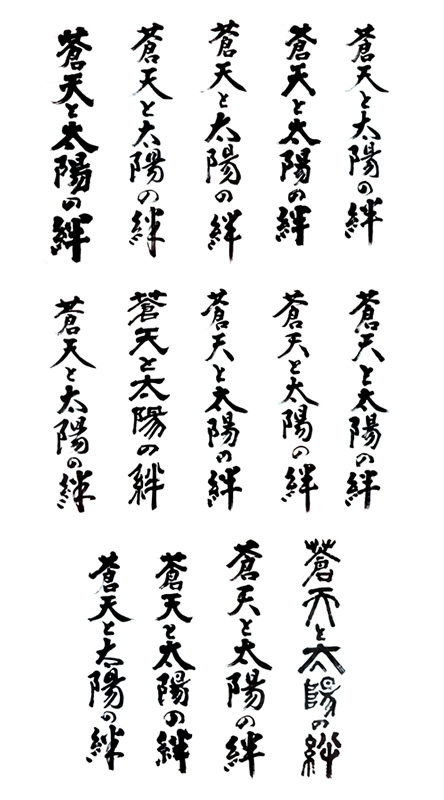 蒼天と太陽の絆
蒼天と太陽の絆
蒼天と太陽の絆
蒼天と太陽の絆
蒼天と太陽の絆
蒼天と太陽の絆
蒼天と太陽の絆
蒼天と太陽の絆
蒼天と太陽の絆
蒼天と太陽の絆
蒼天と太陽の絆
蒼天と太陽の絆
蒼天と太陽の絆
蒼天と太陽の絆